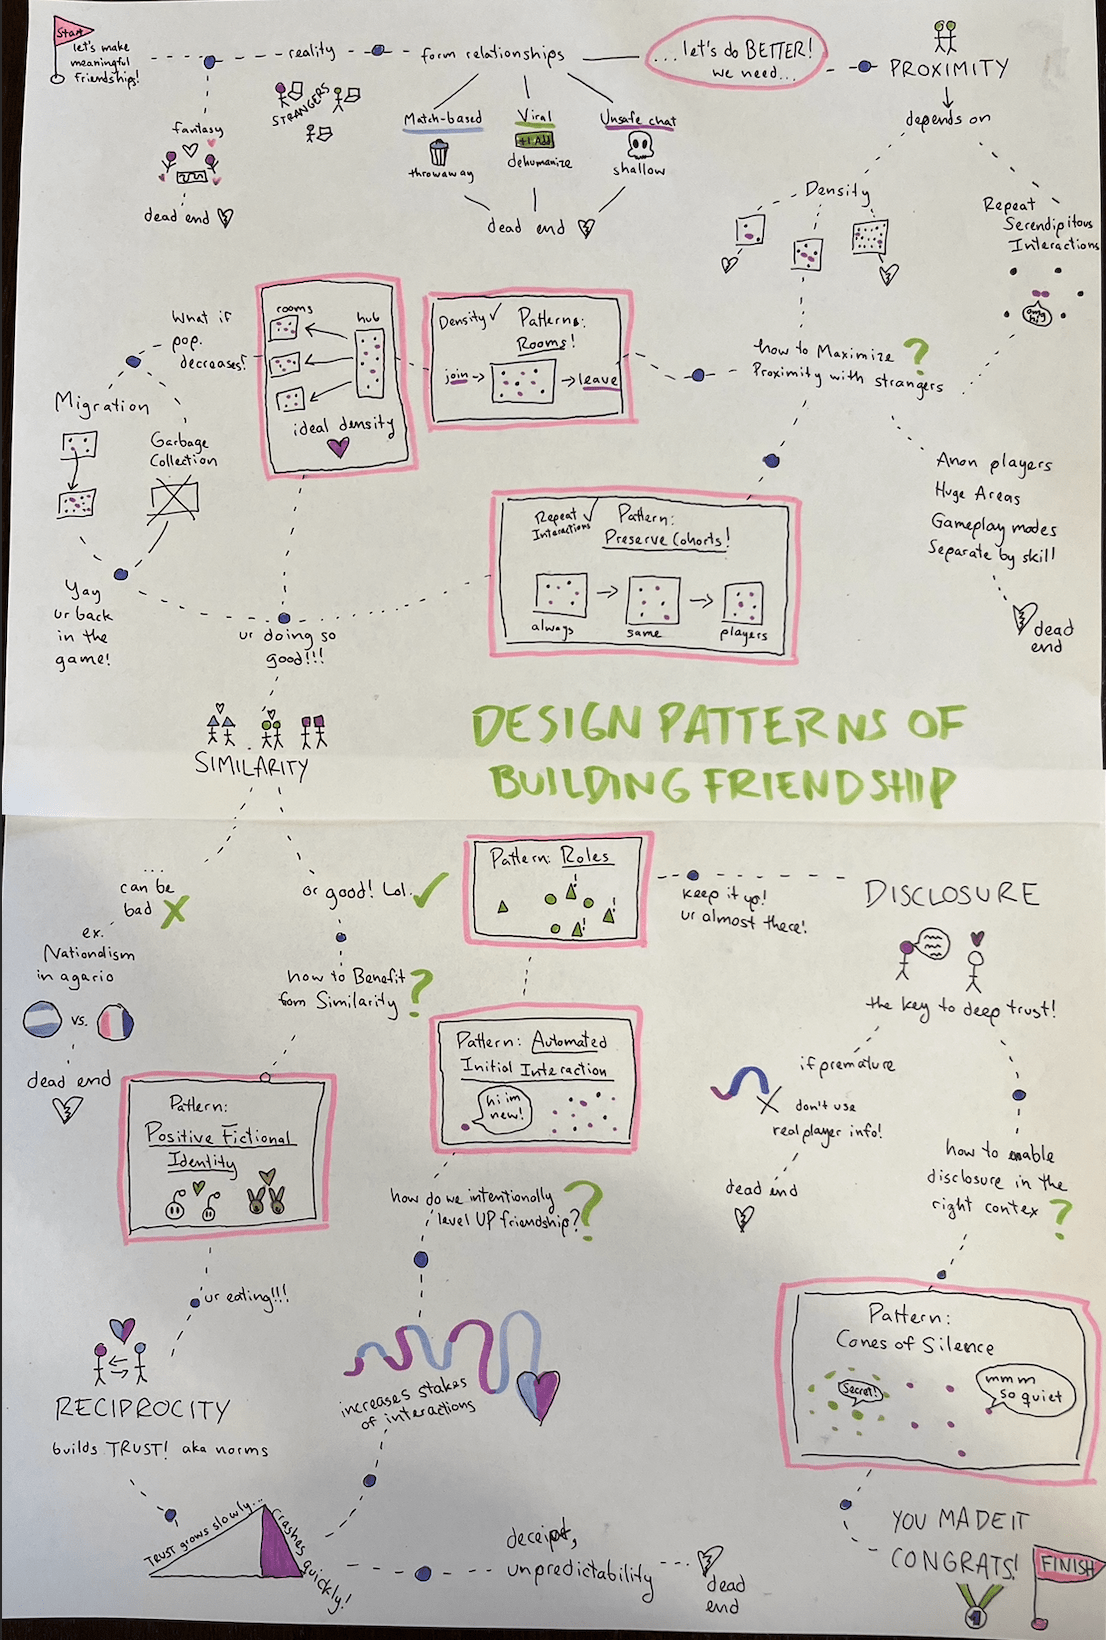 Start
let's make
meaningful
friendships!
reality
form relationships
...let's do BETTER!
we need...
PROXIMITY
depends on
fantasy
dead end
STRANGERS
Match-based
throwaway
Viral
+1 Add
dehumanize
Unsafe chat
shallow
dead end
Density
Repeat
Serendipitous
Interactions
omg
hi
how to Maximize
Proximity with strangers
?
Anon players
Huge Areas
Gameplay modes
Separate by skill
dead
end
Density ✓
Pattern:
Rooms!
join
leave
rooms
hub
ideal density
What if
pop.
decreases?
Migration
Garbage
Collection
Yay
ur back
in the
game!
Repeat
Interactions ✓
Pattern:
Preserve Cohorts!
always
same
players
ur doing so
good!!!
DESIGN PATTERNS OF
BUILDING FRIENDSHIP
SIMILARITY
...
can be
bad X
ex.
Nationalism
in agario
vs.
dead end
or good! Lol. ✓
how to Benefit
from Similarity
?
Pattern:
Positive Fictional
Identity
ur eating!!!
RECIPROCITY
builds TRUST! aka norms
Trust grows slowly...
crashes
quickly!
deceipt,
unpredictability
dead
end
increases stakes
of interactions
how do we intentionally
level UP friendship?
?
Pattern: Automated
Initial Interaction
hi im
new!
Pattern: Roles
keep it up!
ur almost there!
DISCLOSURE
the key to deep trust!
if premature
don't use
real player info!
dead end
how to enable
disclosure in the
right contex
?
Pattern:
Cones of Silence
Secret!
mmm
so quiet
YOU MADE IT
CONGRATS!
FINISH
1